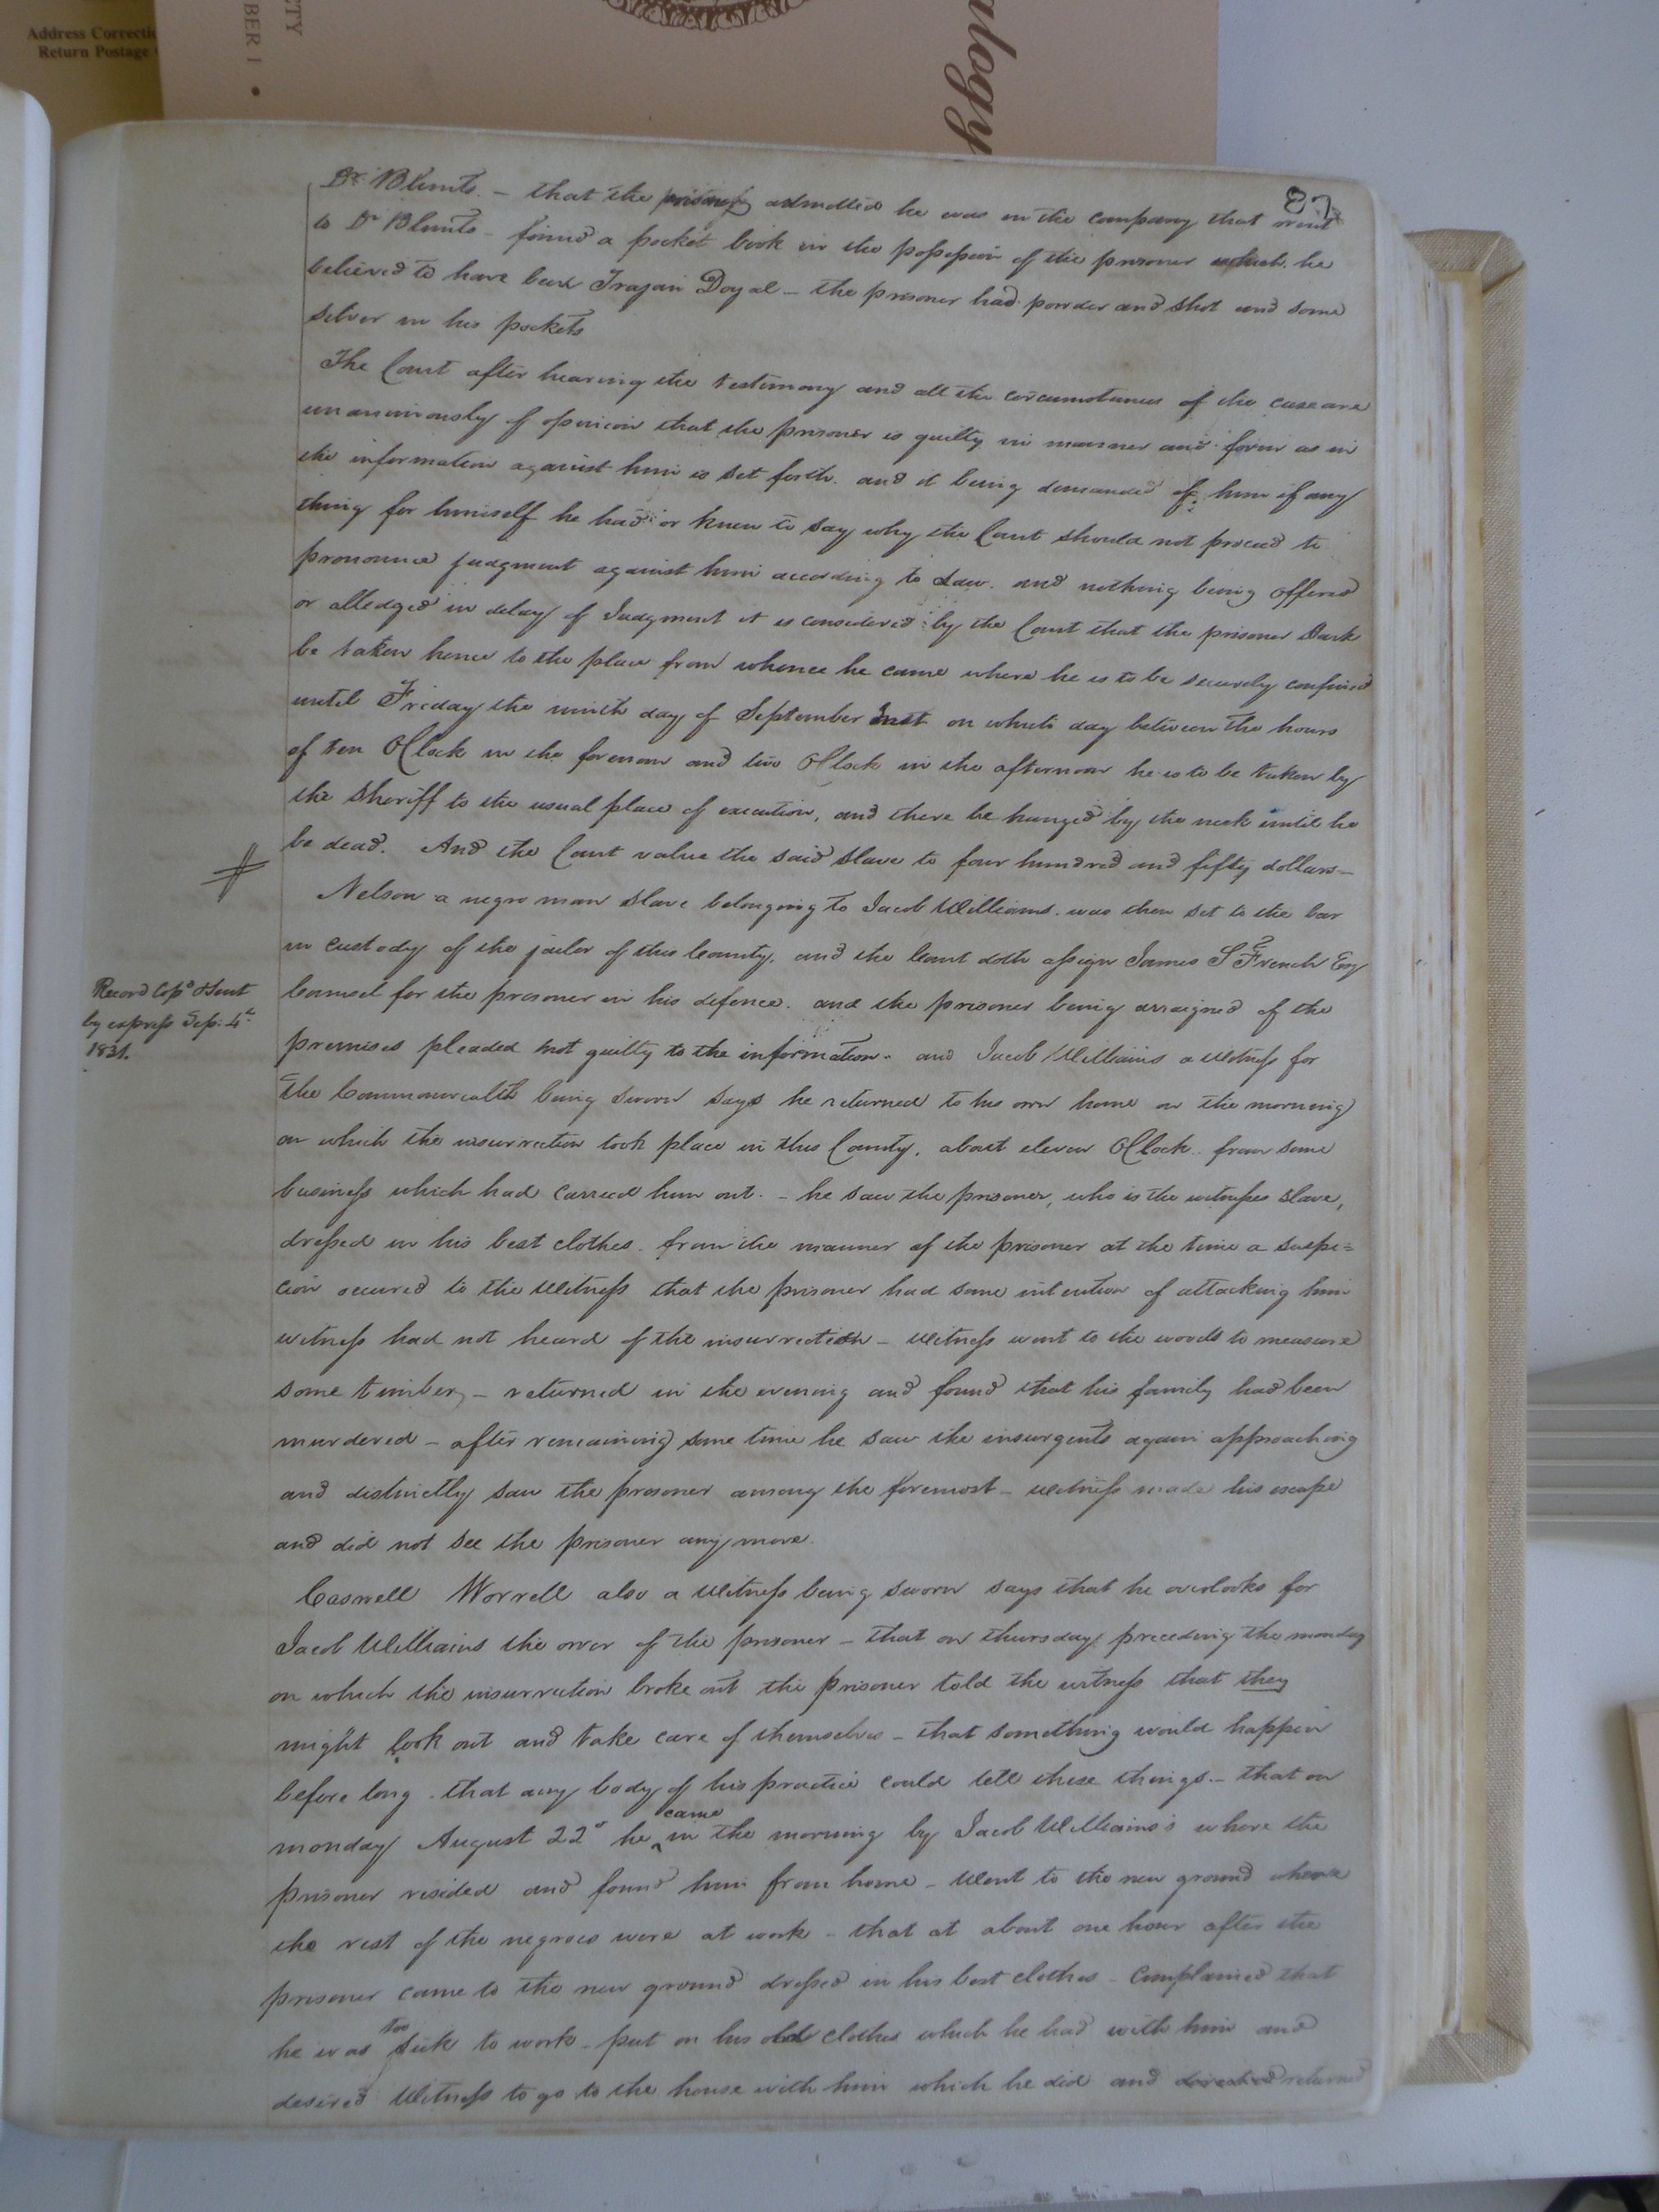 Address Correctio
Return Postage
CTY
BER 1 •
ulogy
87
Dr Blunts. – that the prisoner admitted he was in the company that went
to Dr Blunts – found a pocket book in the possession of the prisoner which he
believed to have been Trajan Doyal – the prisoner had powder and shot and some
silver in his pockets
The Court after hearing the testimony and all the circumstances of the case are
unanimously of opinion that the prisoner is guilty in manner and form as in
the information against him is set forth. and it being demanded of him if any
thing for himself he had or knew to say why the Court should not proceed to
pronounce judgment against him according to Law. and nothing being offered
or alledged in delay of Judgment it is considered by the Court that the prisoner
be taken hence to the place from whence he came where he is to be securely confined
until Friday the ninth day of September Inst on which day between the hours
of ten OClock in the forenoon and two OClock in the afternoon he is to be taken by
the Sheriff to the usual place of execution, and there be hanged by the neck until he
be dead. And the Court value the said slave to four hundred and fifty dollars –
Nelson a negro man slave belonging to Jacob Williams. was then set to the bar
in custody of the jailor of this County, and the Court doth assign James S French Esq
Counsel for the prisoner in his defence. and the prisoner being arraigned of the
Record Cop'd & Sent
by express Sep: 4th
1831.
premises pleaded not guilty to the information. and Jacob Williams a Witness for
the Commonwealth being sworn says he returned to his own home on the morning
on which the insurrection took place in this County, about eleven OClock from some
business which had carried him out. – he saw the prisoner, who is the witnesses slave,
dressed in his best clothes. from the manner of the prisoner at the time a suspi=
cion occured to the Witness that the prisoner had some intention of attacking him
witness had not heard of the insurrection – Witness went to the woods to measure
some timber, – returned in the evening and found that his family had been
murdered – after remaining some time he saw the insurgents again approaching
and distinctly saw the prisoner among the foremost – witness made his escape
and did not see the prisoner any more.
Caswell Worrell also a Witness being sworn says that he overlooks for
Jacob Williams the owner of the prisoner – that on thursday preceding the monday
on which the insurrection broke out the prisoner told the witness that they
might look out and take care of themselves – that something would happen
before long – that any body of his practice could tell these things. – that on
monday August 22d he came in the morning by Jacob Williams's where the
prisoner resided and found him from home – Went to the new ground where
the rest of the negroes were at work – that at about one hour after the
prisoner came to the new ground dressed in his best clothes – Complained that
he was too sick to work – put on his old clothes which he had with him and
desired Witness to go to the house with him which he did and returned